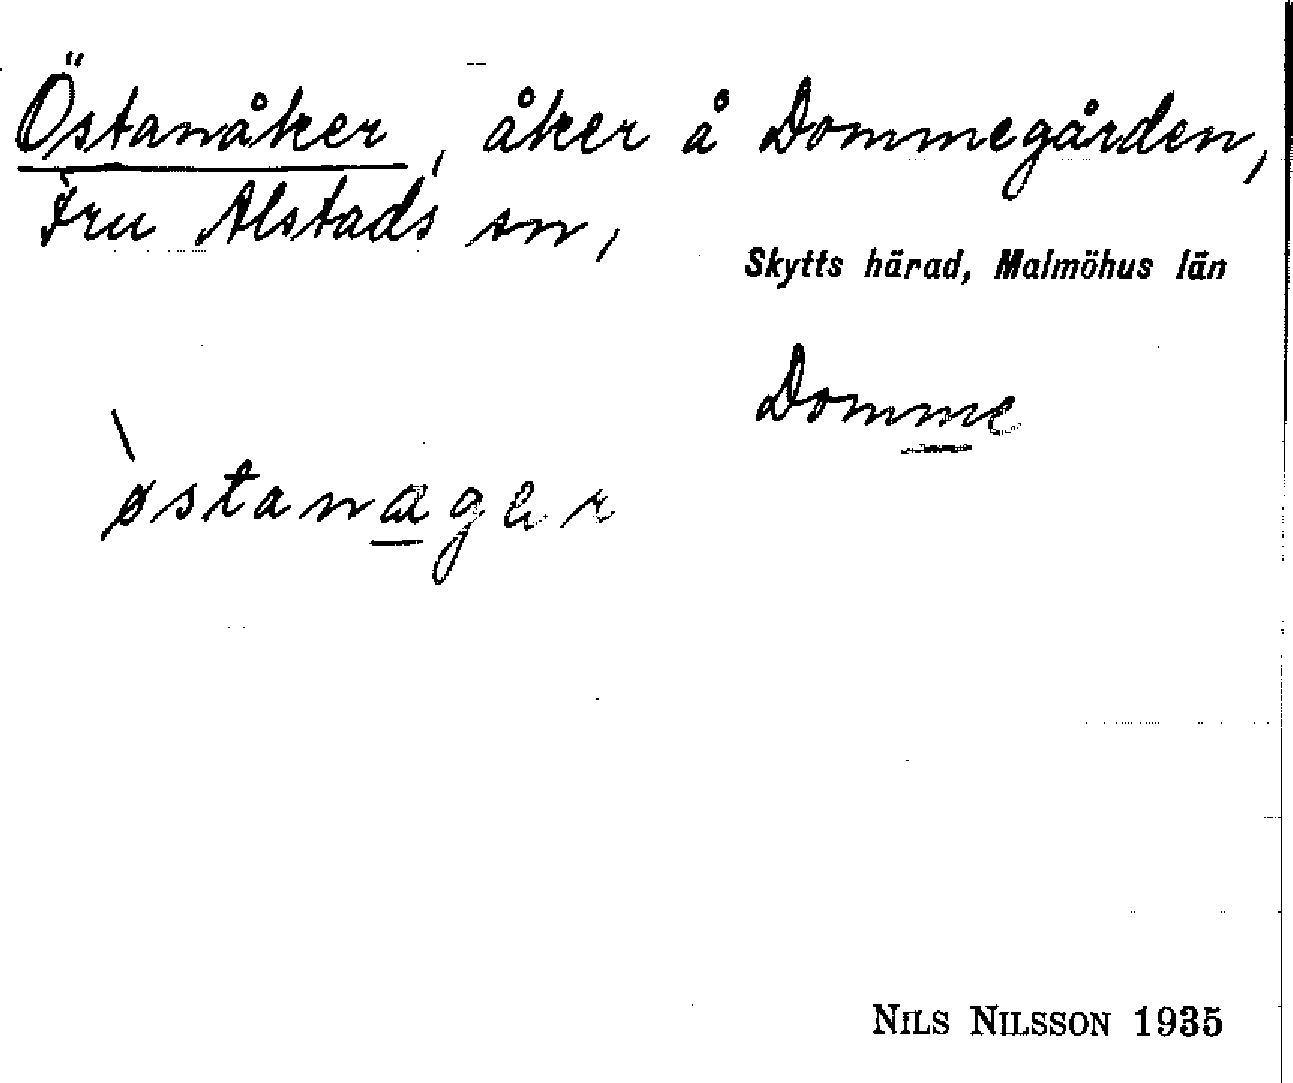 Östanåker, åker å Dommegården,
Fru Alstads sn,
Skytts härad, Malmöhus län
Domme
\
østanager
NILS NILSSON 1935